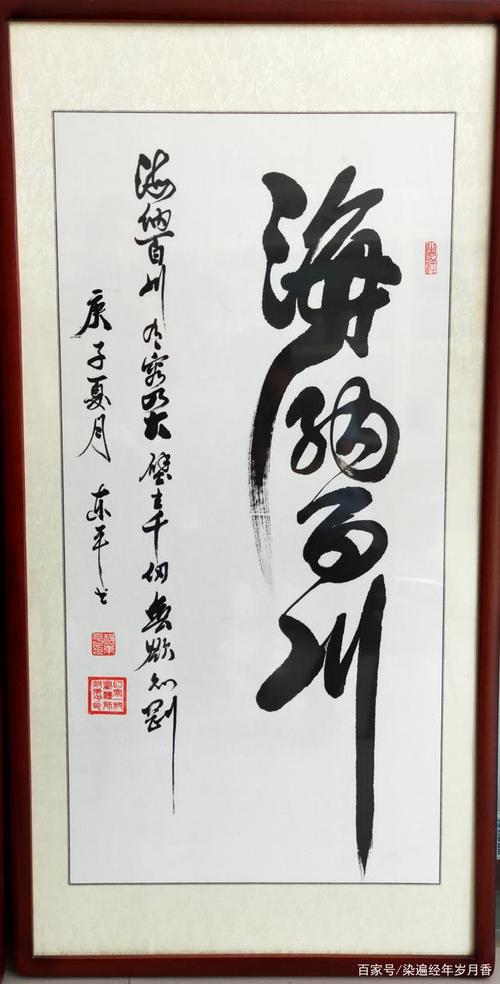 海纳百川
海纳百川有容乃大壁立千仞无欲则刚
庚子夏月 东平书
百家号/染遍经年岁月香